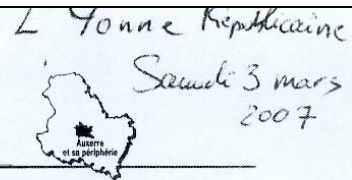 L Yonne Républicaine
Samedi 3 mars
2007
Auxerre
et sa périphérie